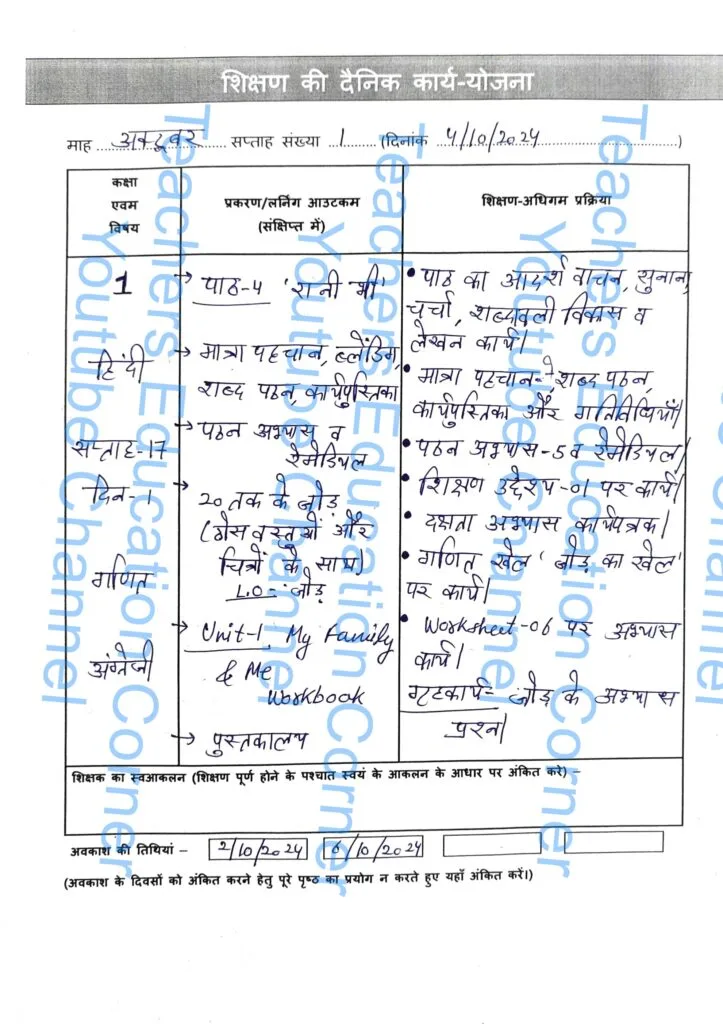 शिक्षण की दैनिक कार्य-योजना
माह अक्टूबर सप्ताह संख्या 1 (दिनांक 4/10/2024)
कक्षा
एवम
विषय
प्रकरण/लर्निंग आउटकम
(संक्षिप्त में)
शिक्षण-अधिगम प्रक्रिया
1
हिंदी
सप्ताह-17
दिन-1
गणित
अंग्रेजी
→ पाठ-4 'रानी भी'
→ मात्रा पहचान, ब्लेंडिंग,
शब्द पठन, कार्यपुस्तिका
→ पठन अभ्यास व
रेमेडियल
20 तक के जोड़
(ठोस वस्तुओं और
चित्रों के साथ)
L.O - जोड़
→ Unit-1, My Family
& Me
Workbook
→ पुस्तकालय
• पाठ का आदर्श वाचन, सुनाना,
चर्चा, शब्दावली विकास व
लेखन कार्य।
• मात्रा पहचान-े, शब्द पठन,
कार्यपुस्तिका और गतिविधियाँ।
• पठन अभ्यास-5 व रेमेडियल।
• शिक्षण उद्देश्य-01 पर कार्य।
• दक्षता अभ्यास कार्यपत्रक।
• गणित खेल 'जोड़ का खेल'
पर कार्य।
• Worksheet-06 पर अभ्यास
कार्य।
गृहकार्य- जोड़ के अभ्यास
प्रश्न।
शिक्षक का स्वआकलन (शिक्षण पूर्ण होने के पश्चात स्वयं के आकलन के आधार पर अंकित करे) –
अवकाश की तिथियां – 2/10/2024 6/10/2024
(अवकाश के दिवसों को अंकित करने हेतु पूरे पृष्ठ का प्रयोग न करते हुए यहाँ अंकित करें।)
Teachers Education Corner
Youtube Channel
Teachers Education Corner
Youtube Channel
Teachers Education Corner
Youtube Channel